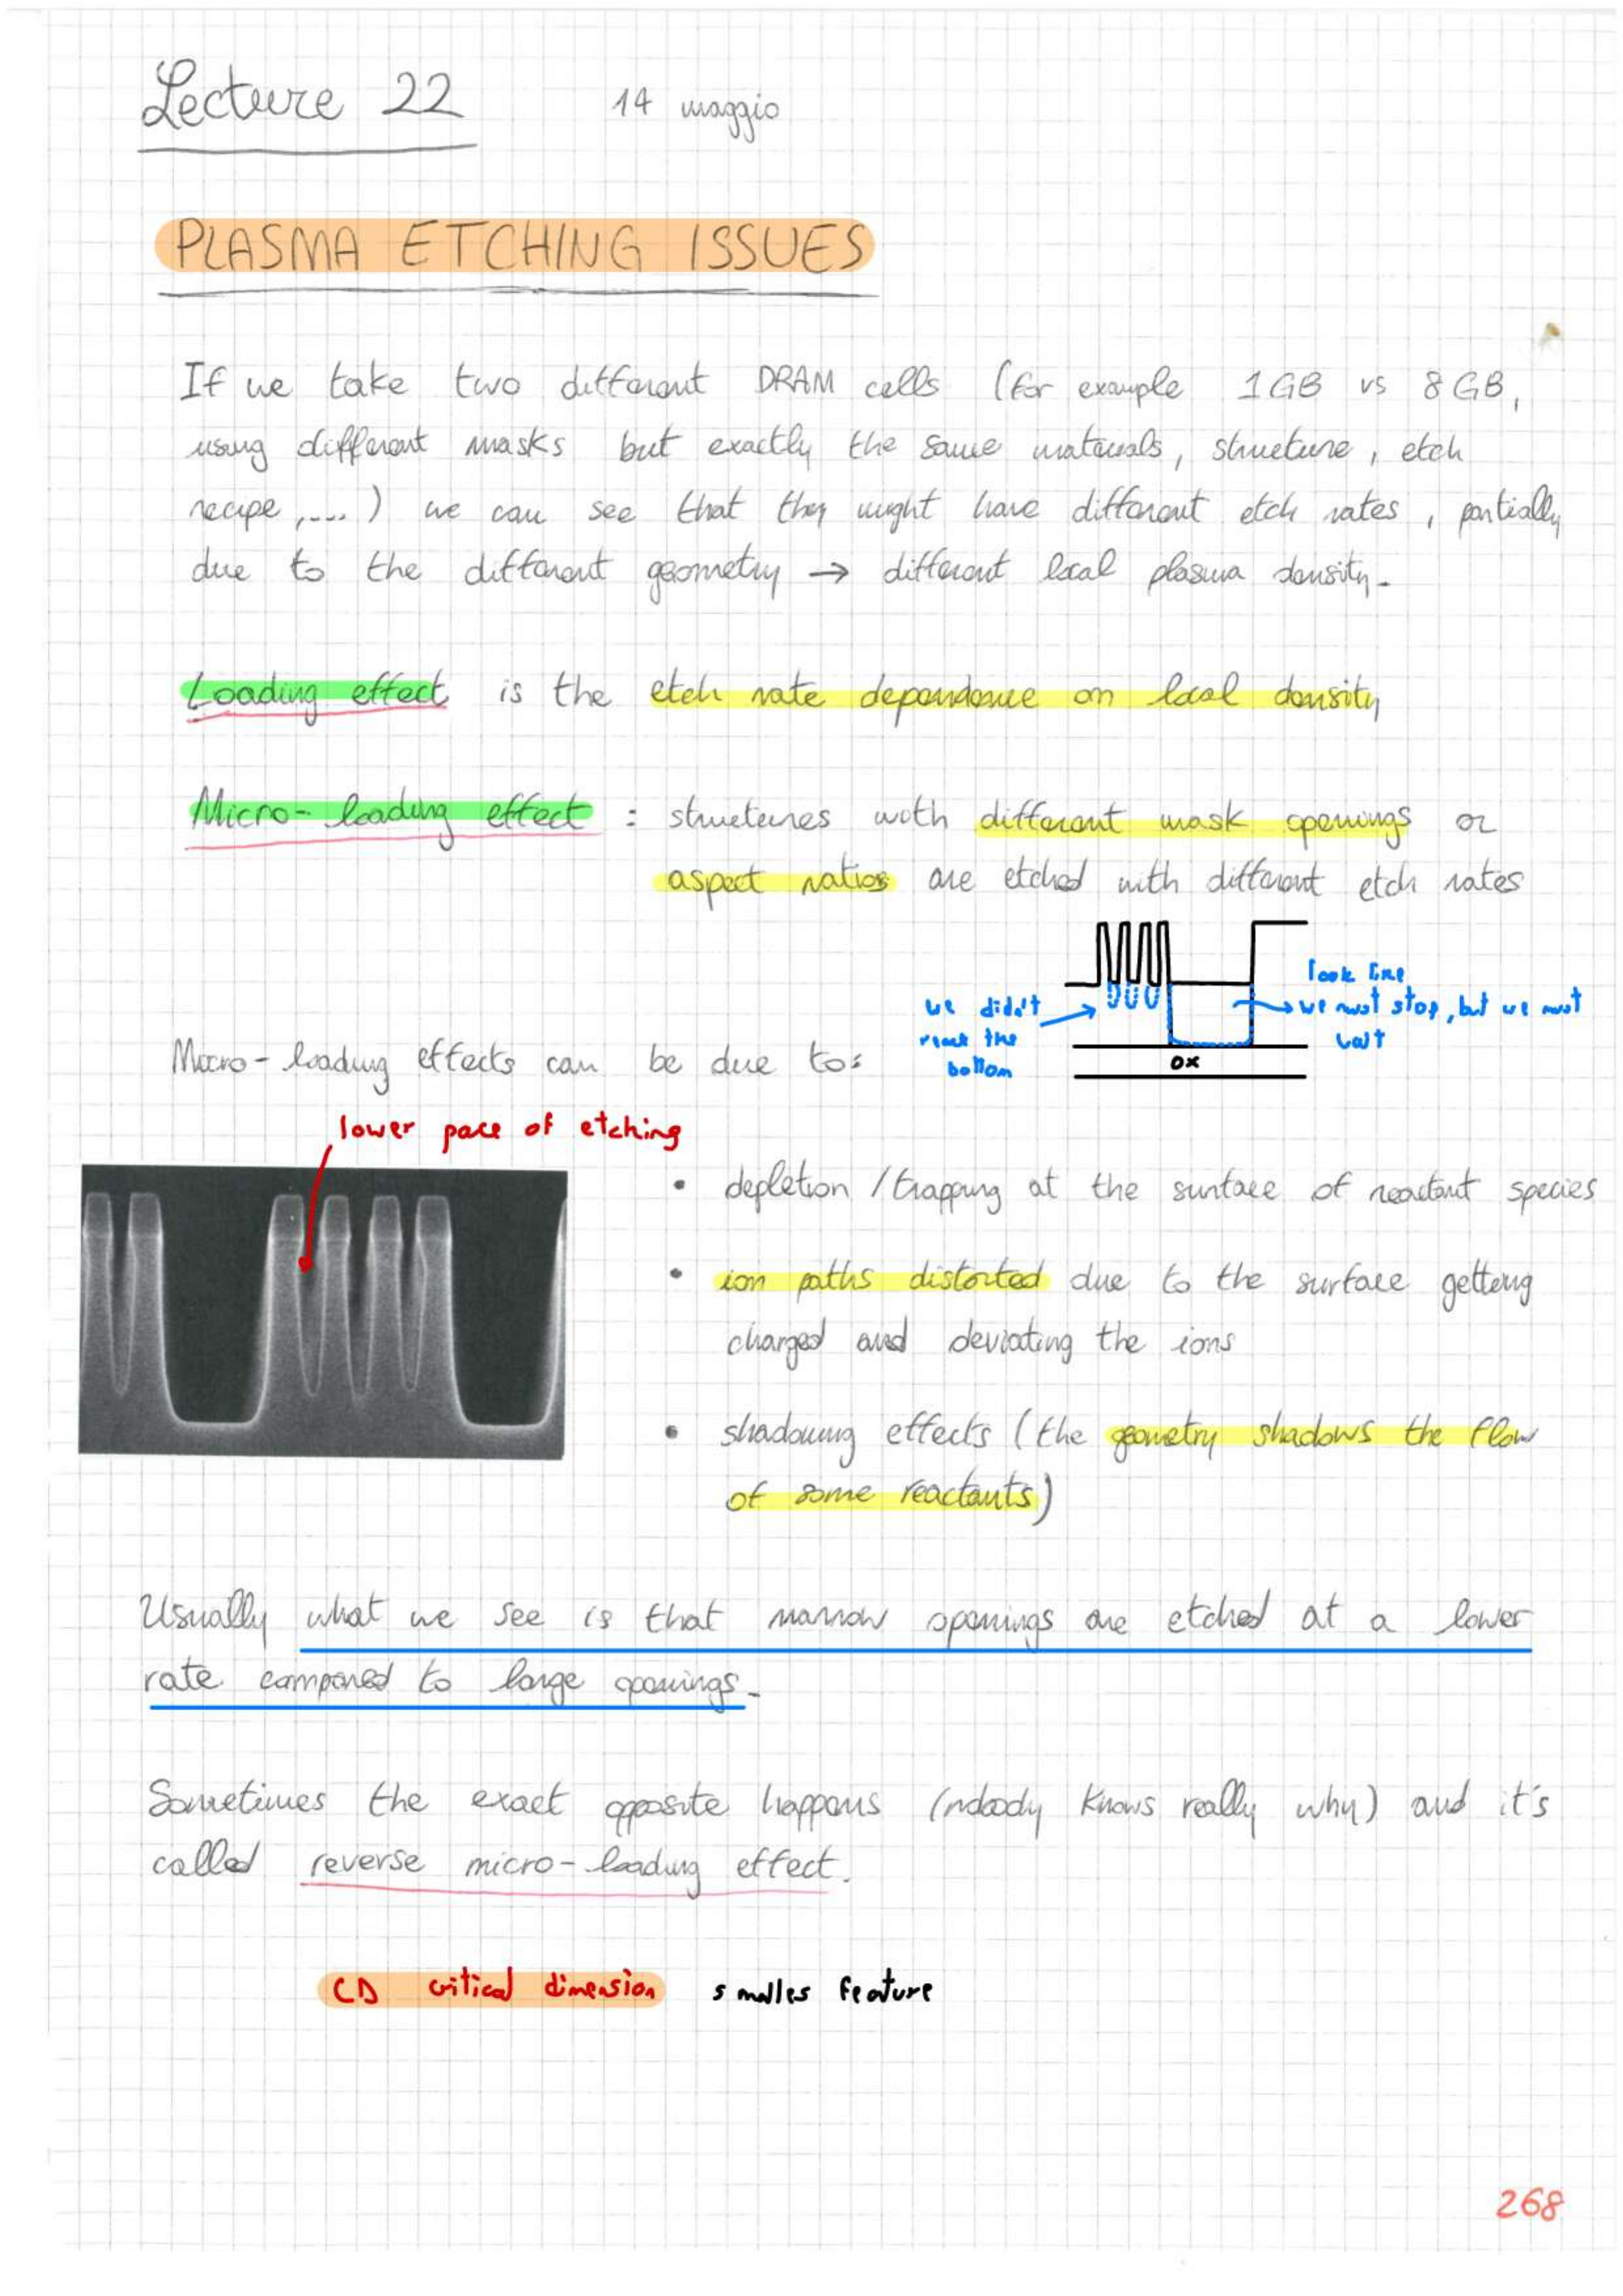 Lecture 22 14 maggio
PLASMA ETCHING ISSUES
If we take two different DRAM cells (for example 1GB vs 8GB,
using different masks but exactly the same materials, structure, etch
recipe, ....) we can see that they might have different etch rates, partially
due to the different geometry → different local plasma density.
Loading effect is the etch rate dependence on local density
Micro-loading effect : structures with different mask openings or
aspect ratios are etched with different etch rates
we didn't
reach the
bottom
look fine
→ we must stop, but we must
wait
ox
Micro-loading effects can be due to:
lower pace of etching
• depletion / trapping at the surface of reactant species
• ion paths distorted due to the surface getting
charged and deviating the ions
• shadowing effects (the geometry shadows the flow
of some reactants)
Usually what we see is that narrow openings are etched at a lower
rate compared to large openings.
Sometimes the exact opposite happens (nobody knows really why) and it's
called reverse micro-loading effect.
CD critical dimension smalles feature
268